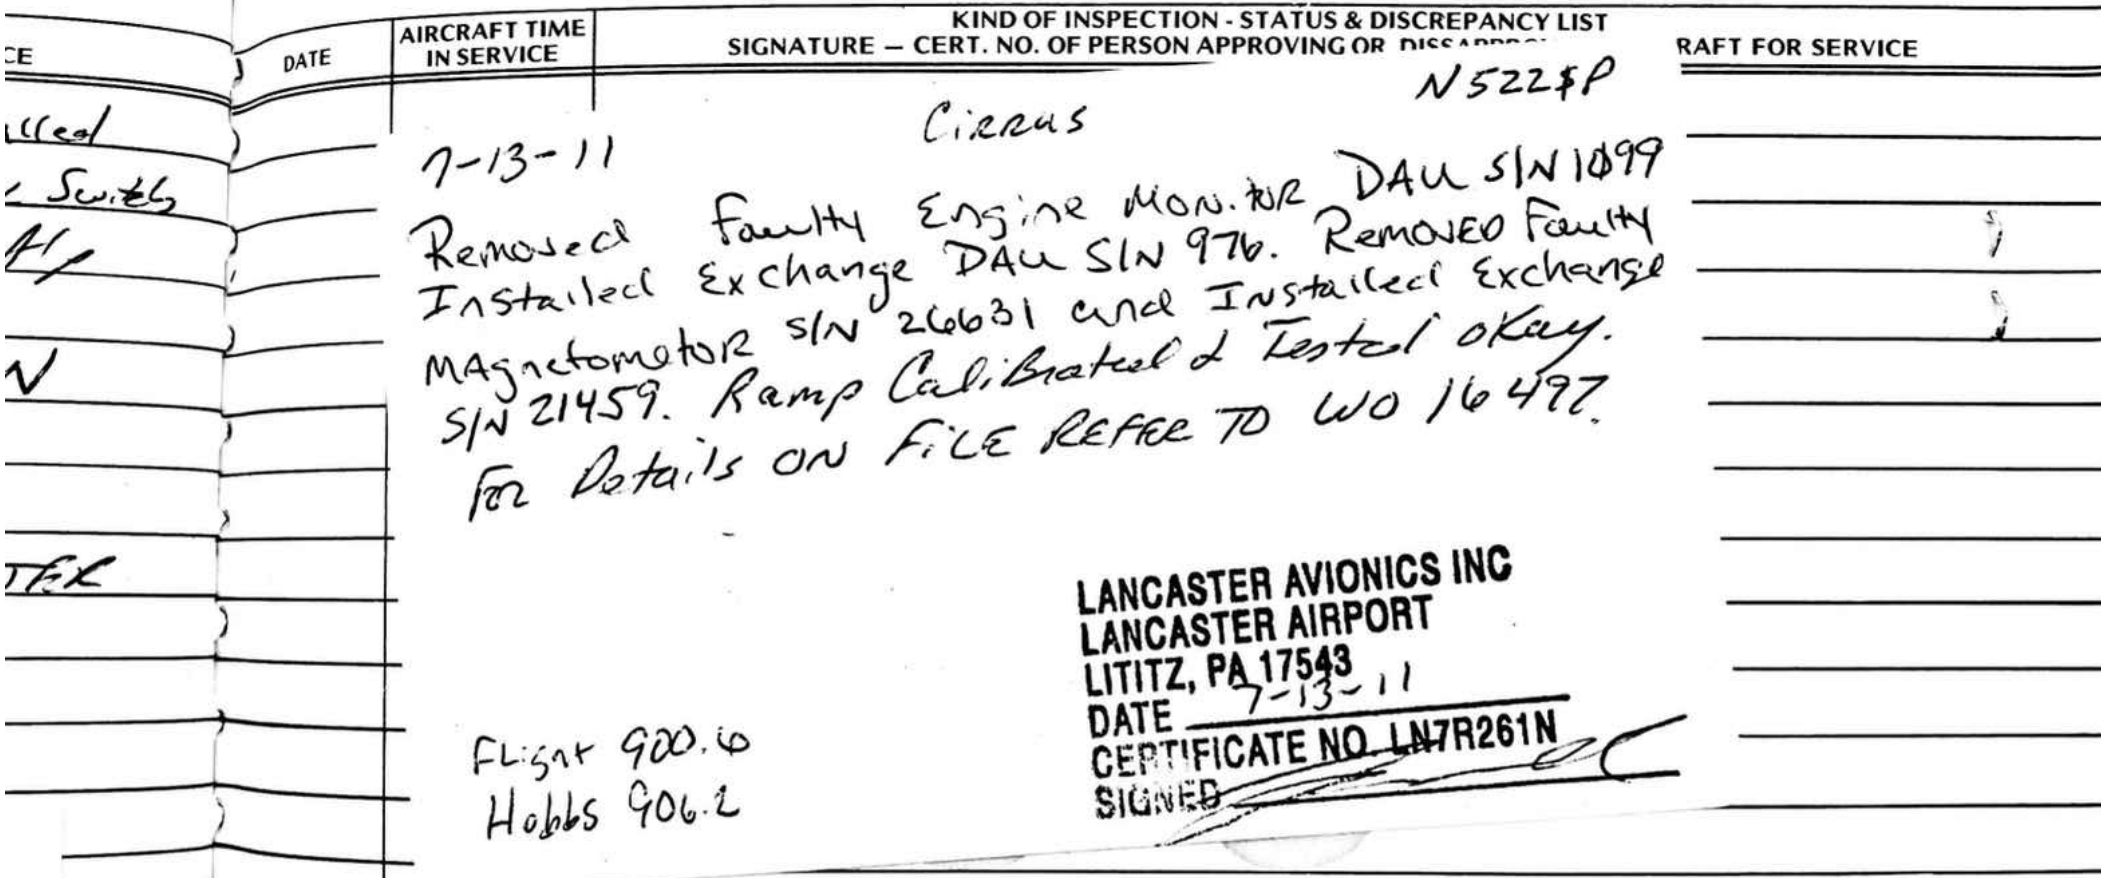 CE
DATE
AIRCRAFT TIME
IN SERVICE
KIND OF INSPECTION - STATUS & DISCREPANCY LIST
SIGNATURE — CERT. NO. OF PERSON APPROVING OR RAFT FOR SERVICE
lled
Switch
N
TER
N522$P
Cirrus
7-13-11
Removed Faulty Engine Monitor DAU S/N 1099
Installed Exchange DAU S/N 976. Removed Faulty
Magnetometor S/N 26631 and Installed Exchange
S/N 21459. Ramp Calibrated & Tested okay.
For Details ON File Refer TO WO 16497.
LANCASTER AVIONICS INC
LANCASTER AIRPORT
LITITZ, PA 17543
DATE 7-13-11
CERTIFICATE NO. LN7R261N
SIGNED
Flight 900.6
Hobbs 906.2